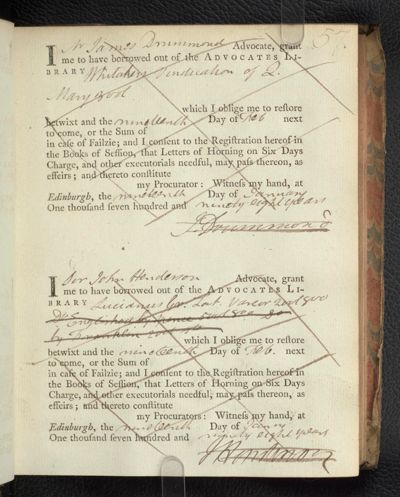 I Mr James Drummond Advocate, grant
me to have borrowed out of the ADVOCATES LI-
BRARY Whitakers Vindication of Q.
Mary
which I oblige me to reſtore
betwixt and the nineteenth Day of Feb next
to come, or the Sum of
in caſe of Failzie; and I conſent to the Regiſtration hereof in
the Books of Seſſion, that Letters of Horning on Six Days
Charge, and other executorials needful, may paſs thereon, as
effeirs; and thereto conſtitute
my Procurator: Witneſs my hand, at
Edinburgh, the nineteenth Day of January
One thouſand ſeven hundred and ninety eight years
J Drummond
I John Henderson Advocate, grant
me to have borrowed out of the ADVOCATES LI-
BRARY Lucianus Gr. Lat.
Do Englished by
by Francklin
which I oblige me to reſtore
betwixt and the nineteenth Day of Feb. next
to come, or the Sum of
in caſe of Failzie; and I conſent to the Regiſtration hereof in
the Books of Seſſion, that Letters of Horning on Six Days
Charge, and other executorials needful, may paſs thereon, as
effeirs; and thereto conſtitute
my Procurators: Witneſs my hand, at
Edinburgh, the nineteenth Day of Jany
One thouſand ſeven hundred and ninety eight years
J Henderson